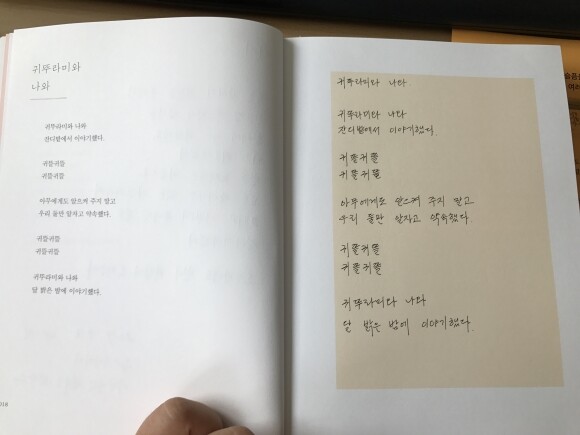 귀뚜라미와
나와
귀뚜라미와 나와
잔디밭에서 이야기했다.
귀뜰귀뜰
귀뜰귀뜰
아무에게도 알으켜 주지 말고
우리 둘만 알자고 약속했다.
귀뜰귀뜰
귀뜰귀뜰
귀뚜라미와 나와
달 밝은 밤에 이야기했다.
018
귀뚜라미와 나와
귀뚜라미와 나와
잔디밭에서 이야기했다.
귀뜰귀뜰
귀뜰귀뜰
아무에게도 알으켜 주지 말고
우리 둘만 알자고 약속했다.
귀뜰귀뜰
귀뜰귀뜰
귀뚜라미와 나와
달 밝은 밤에 이야기했다.